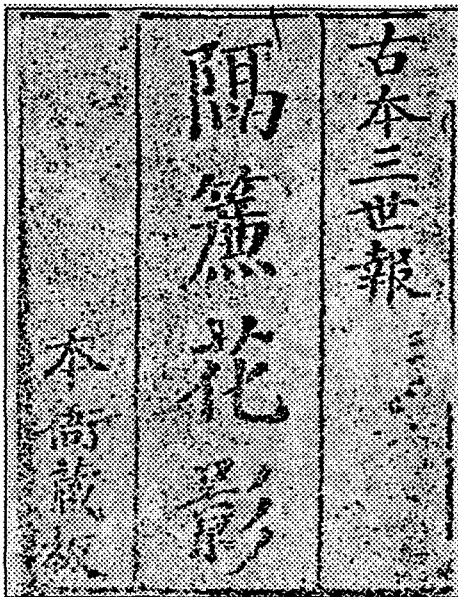 古本三世報
隔簾花影
本衙藏板